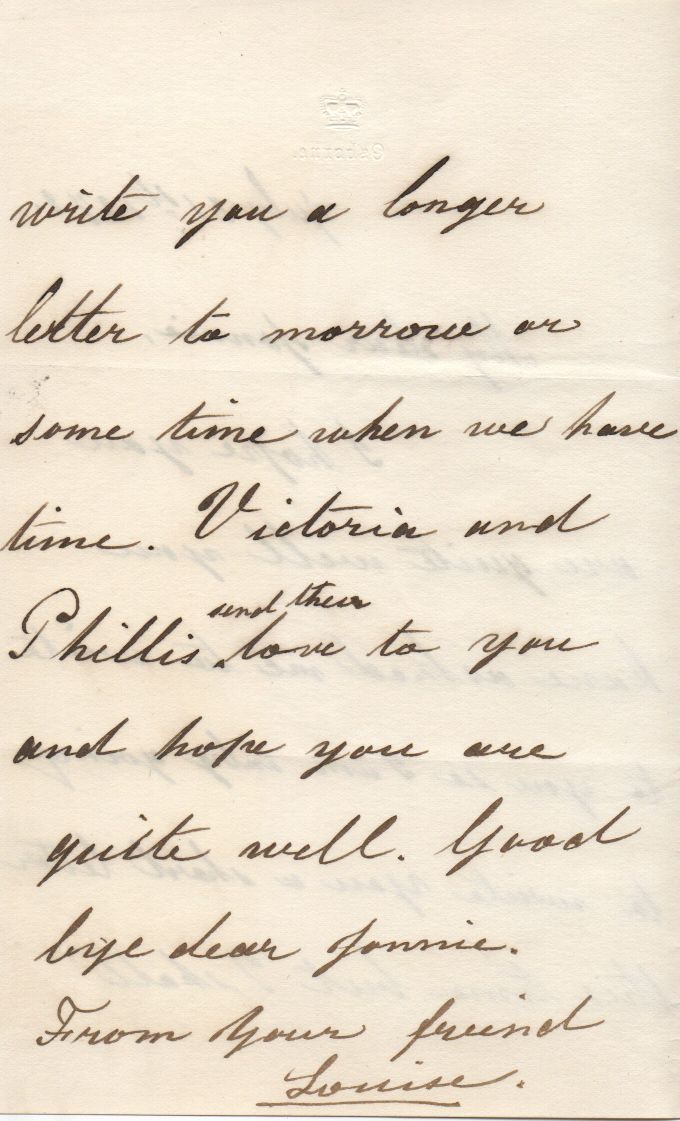 write you a longer
letter to morrow or
some time when we have
time. Victoria and
send their
Phillis ‸ love to you
and hope you are
quite well. Good
bye dear Jonnie.
From Your freind
Louise.